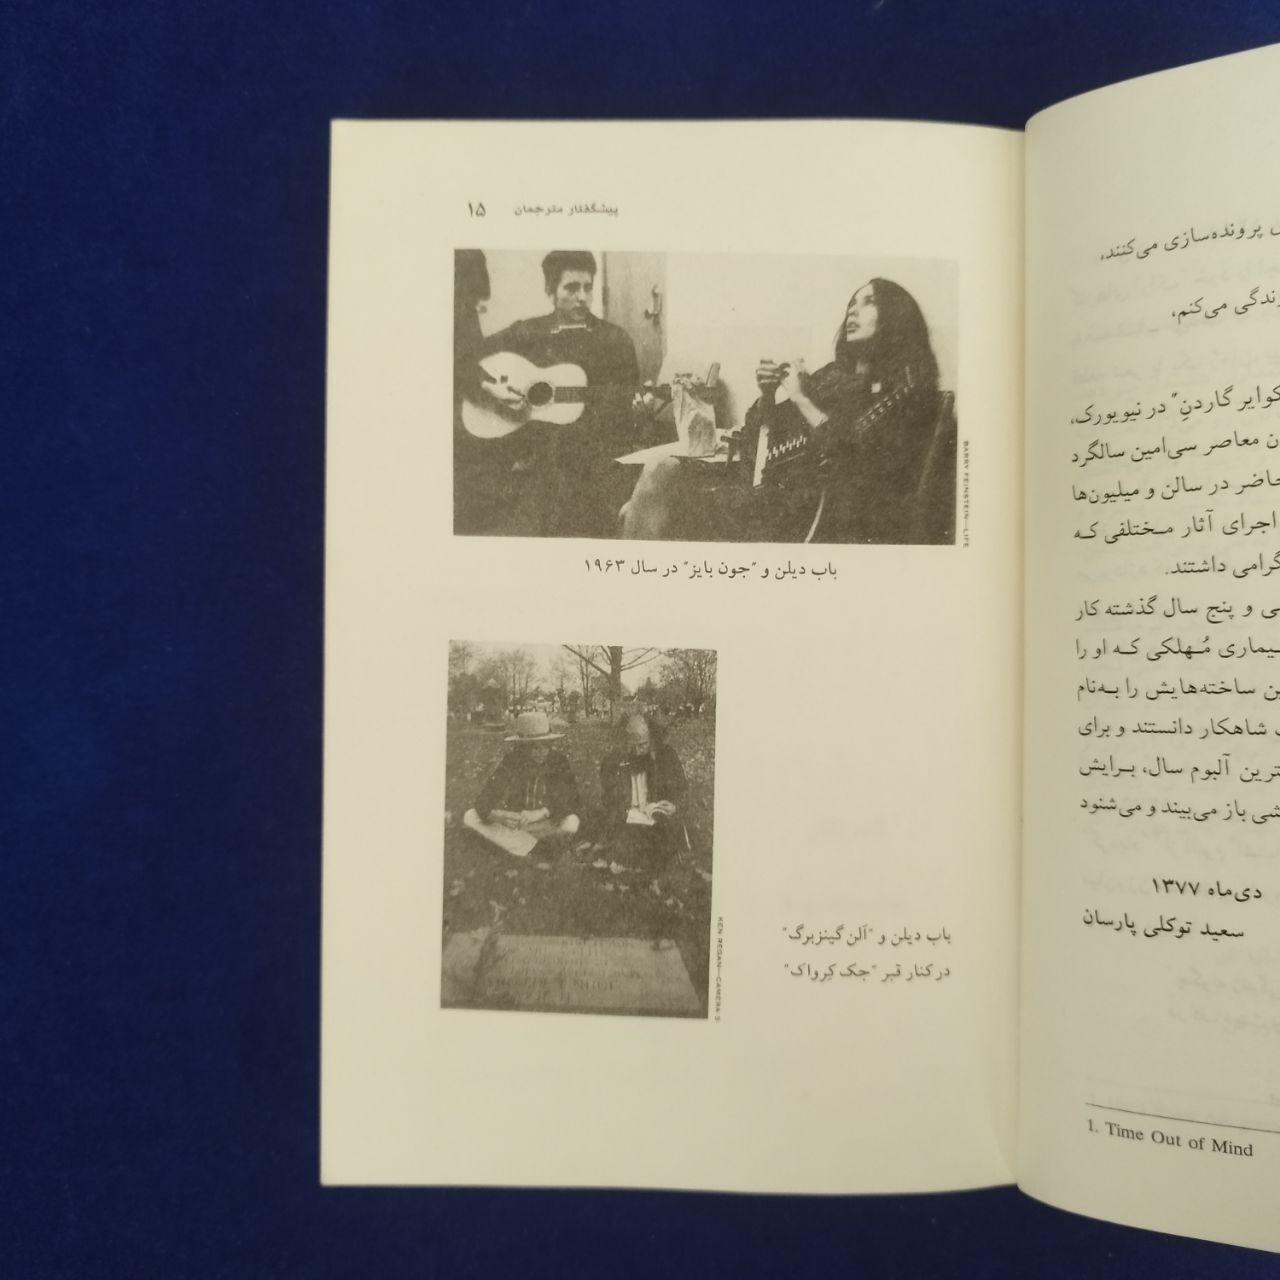 پیشگفتار مترجمان ۱۵
BARRY FEINSTEIN—LIFE
باب دیلن و "جون بایز" در سال ۱۹۶۳
KEN REGAN—CAMERA 5
باب دیلن و "آلن گینزبرگ"
در کنار قبر "جک کِرواک"
پرونده‌سازی می‌کنند،
می‌کنم،
گاردنِ" در نیویورک،
معاصر سی‌امین سالگرد
در سالن و میلیون‌ها
اجرای آثار مختلفی که
گرامی داشتند.
و پنج سال گذشته کار
مُهلکی که او را
ساخته‌هایش را به‌نام
شاهکار دانستند و برای
آلبوم سال، برایش
باز می‌بیند و می‌شنود
دی‌ماه ۱۳۷۷
سعید توکلی پارسان
1. Time Out of Mind